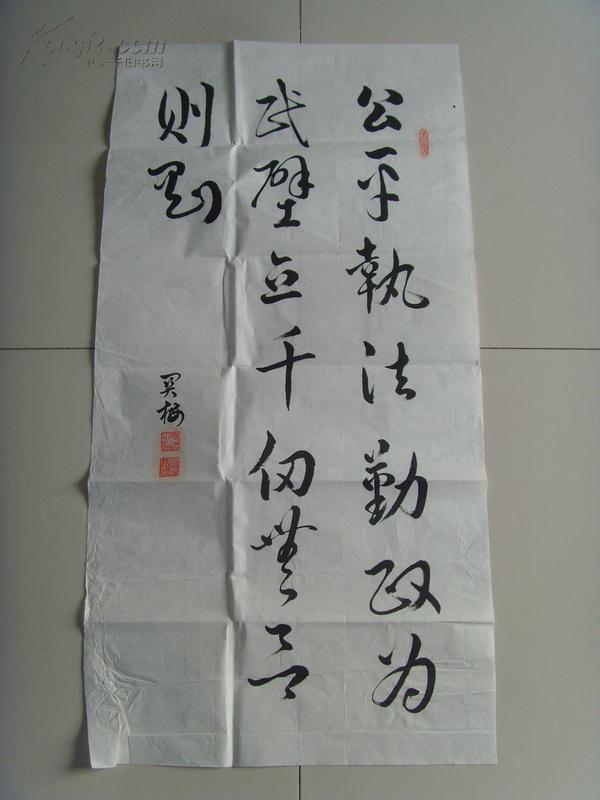 kongfz.com
孔夫子旧书网
公平執法勤政为
民壁立千仞無欲
则刚
梅